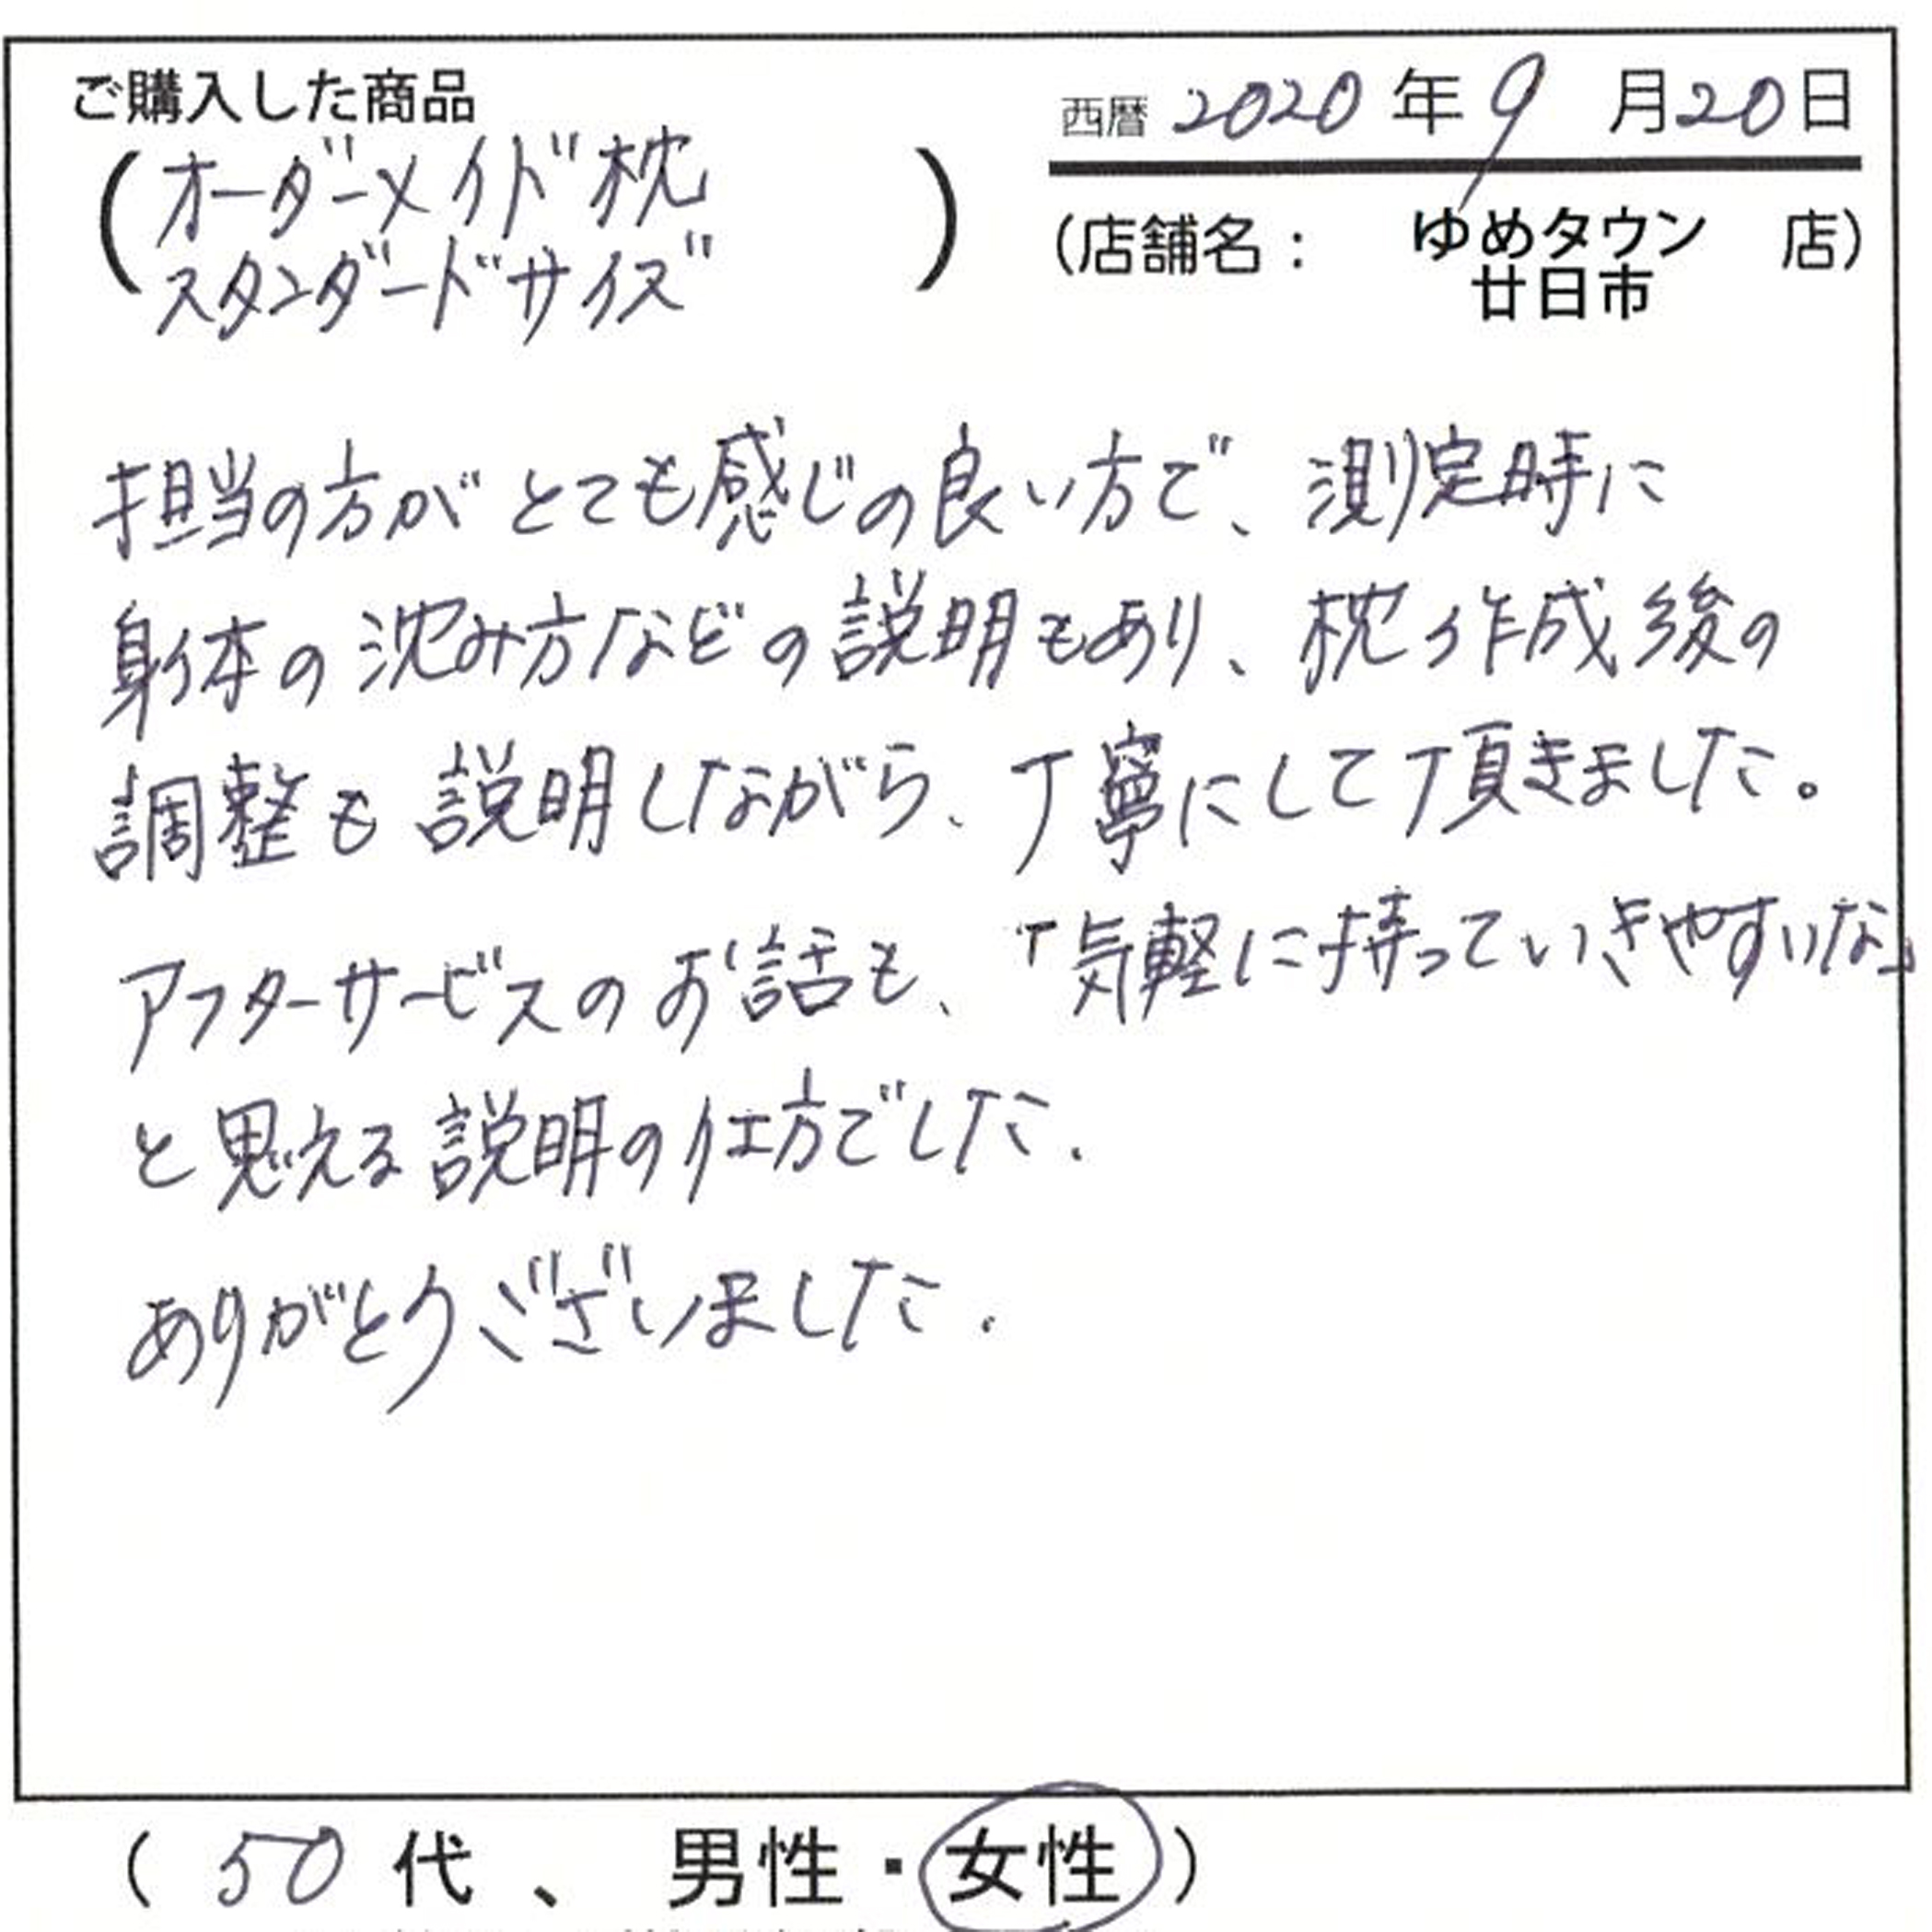 ご購入した商品
西暦 2020 年 9 月 20 日
(オーダーメイド枕
スタンダードサイズ)
(店舗名: ゆめタウン 店)
廿日市
担当の方がとても感じの良い方で、測定時に
身体の沈み方などの説明もあり、枕作成後の
調整も説明しながら、丁寧にして頂きました。
アフターサービスのお話も、「気軽に持っていきやすいな」
と思える説明の仕方でした.
ありがとうございました.
(50代、男性・女性)